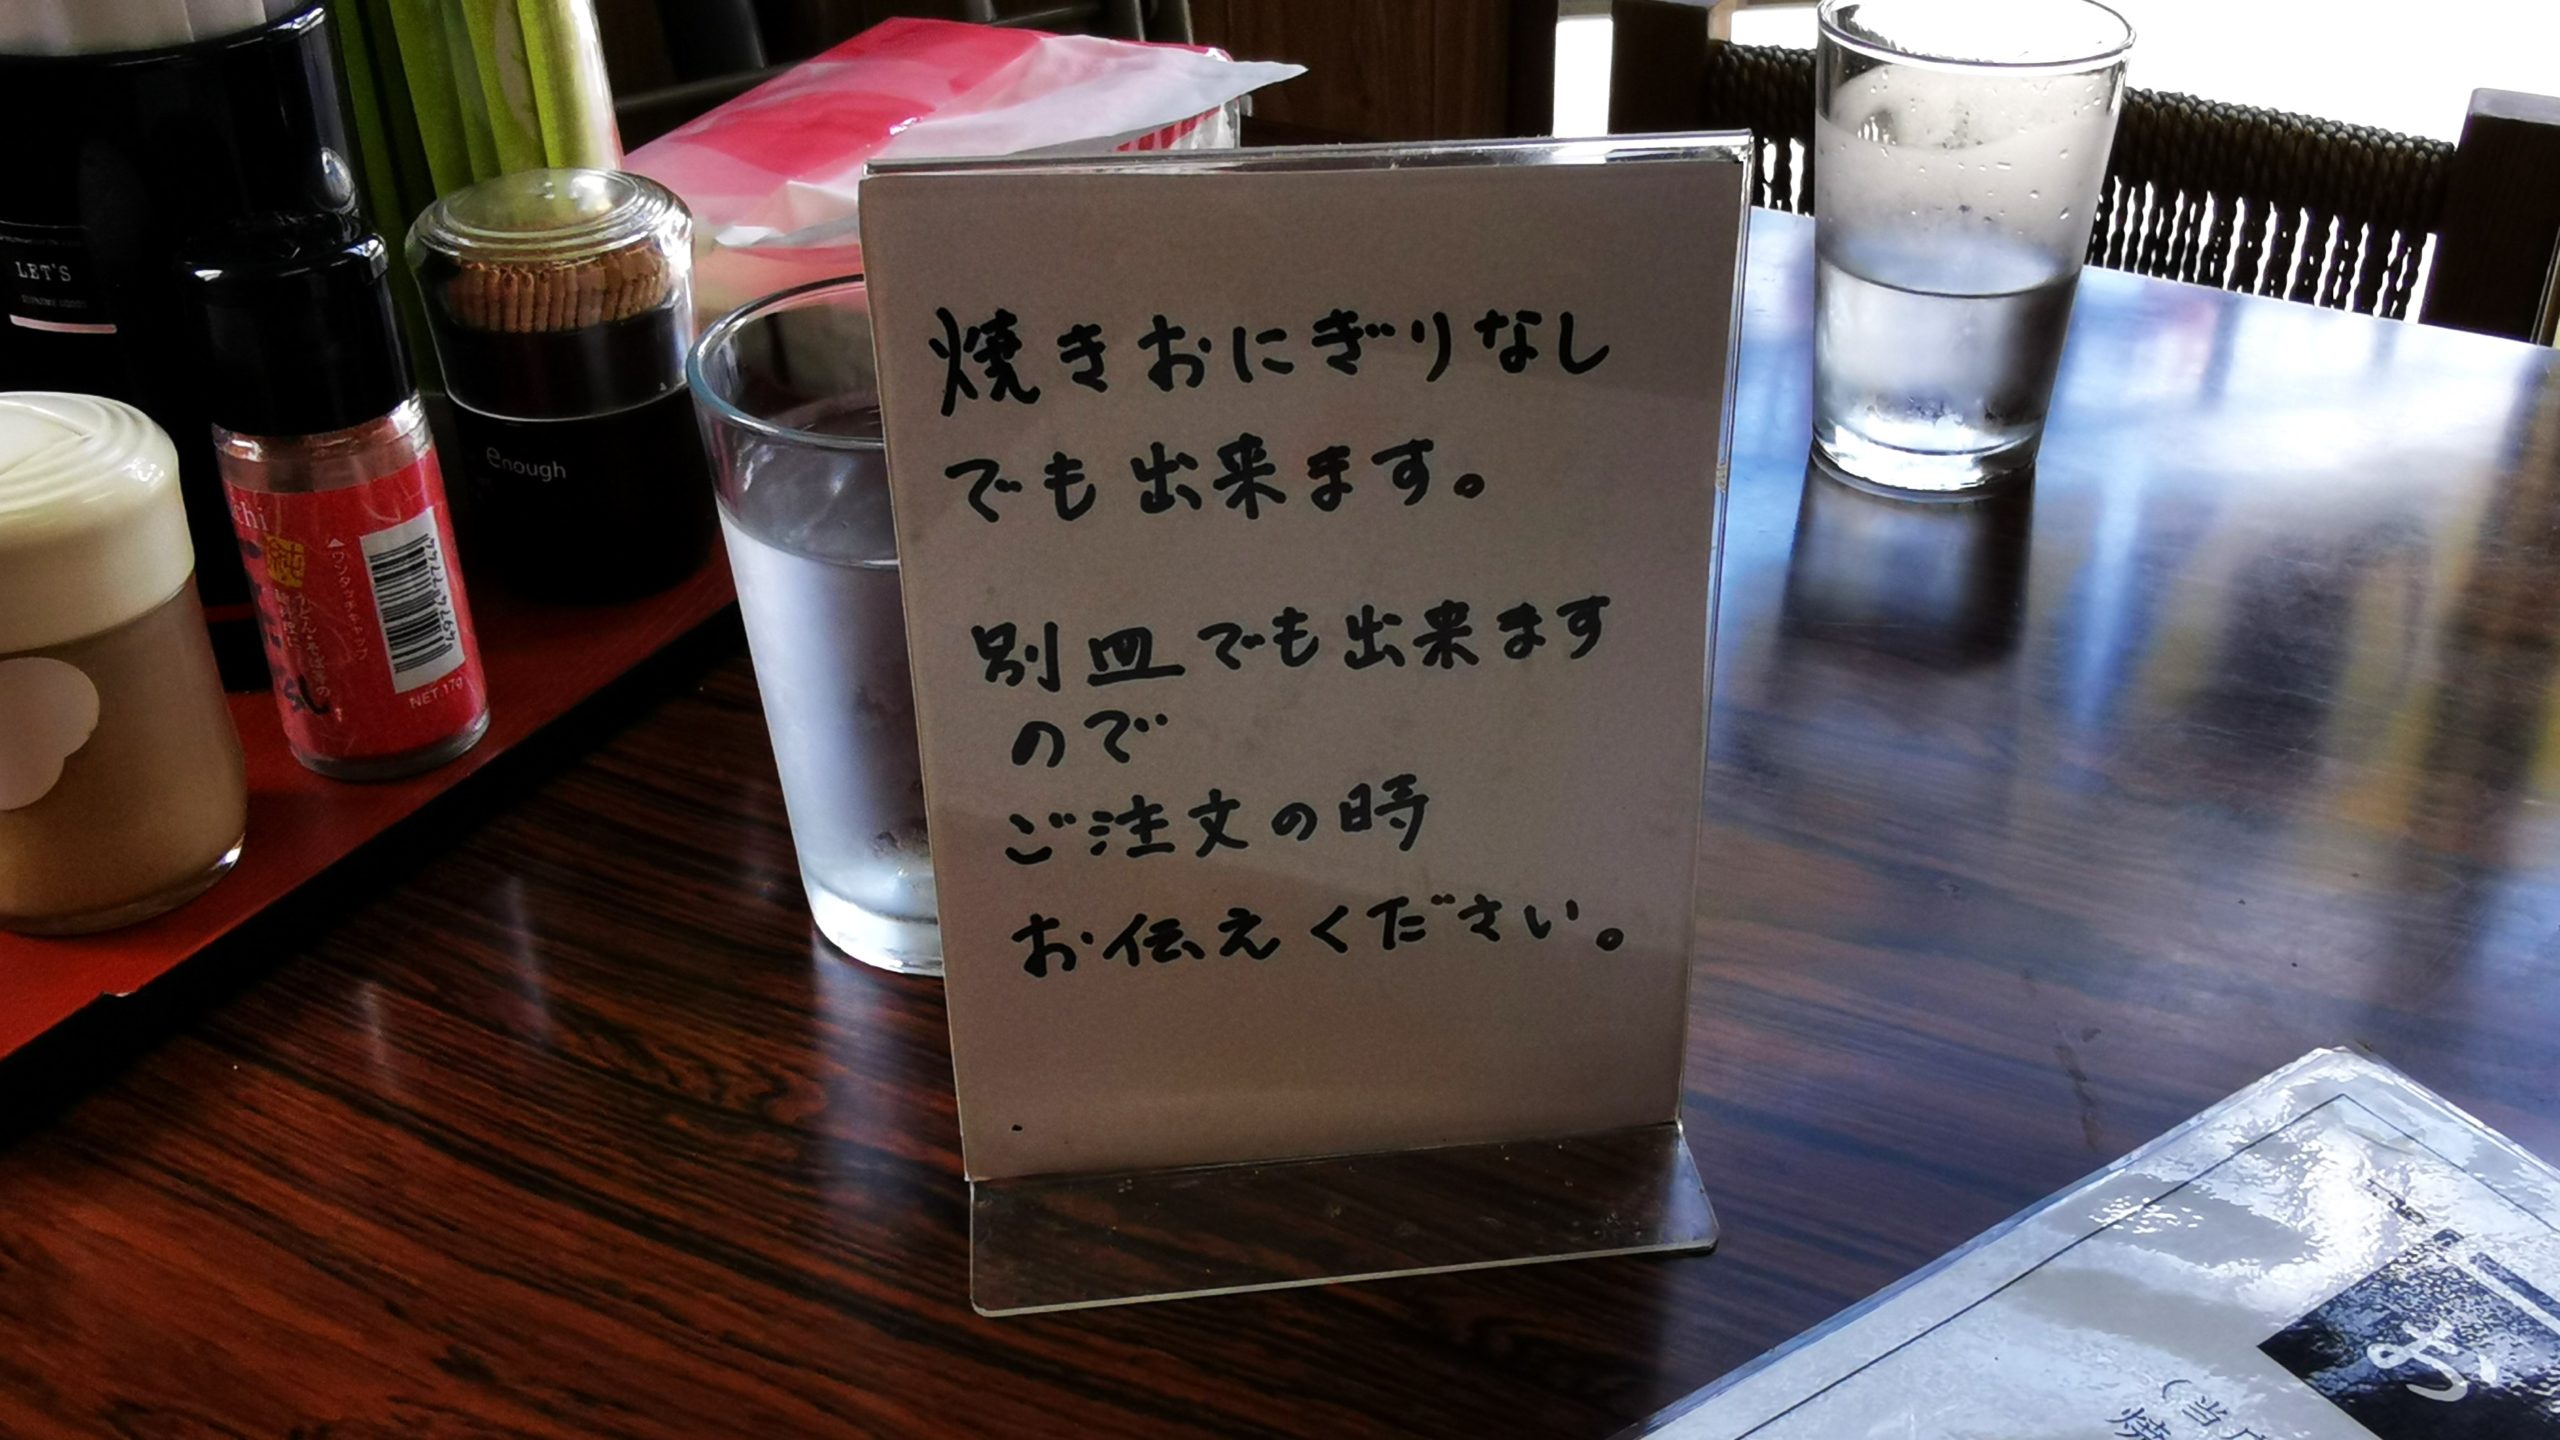 焼きおにぎりなし
でも出来ます。
別皿でも出来ます
ので
ご注文の時
お伝えください。
LET'S
enough
chi
純
▲ワンタッチキャップ
うどん・そば等の
NET 17g
(当
焼